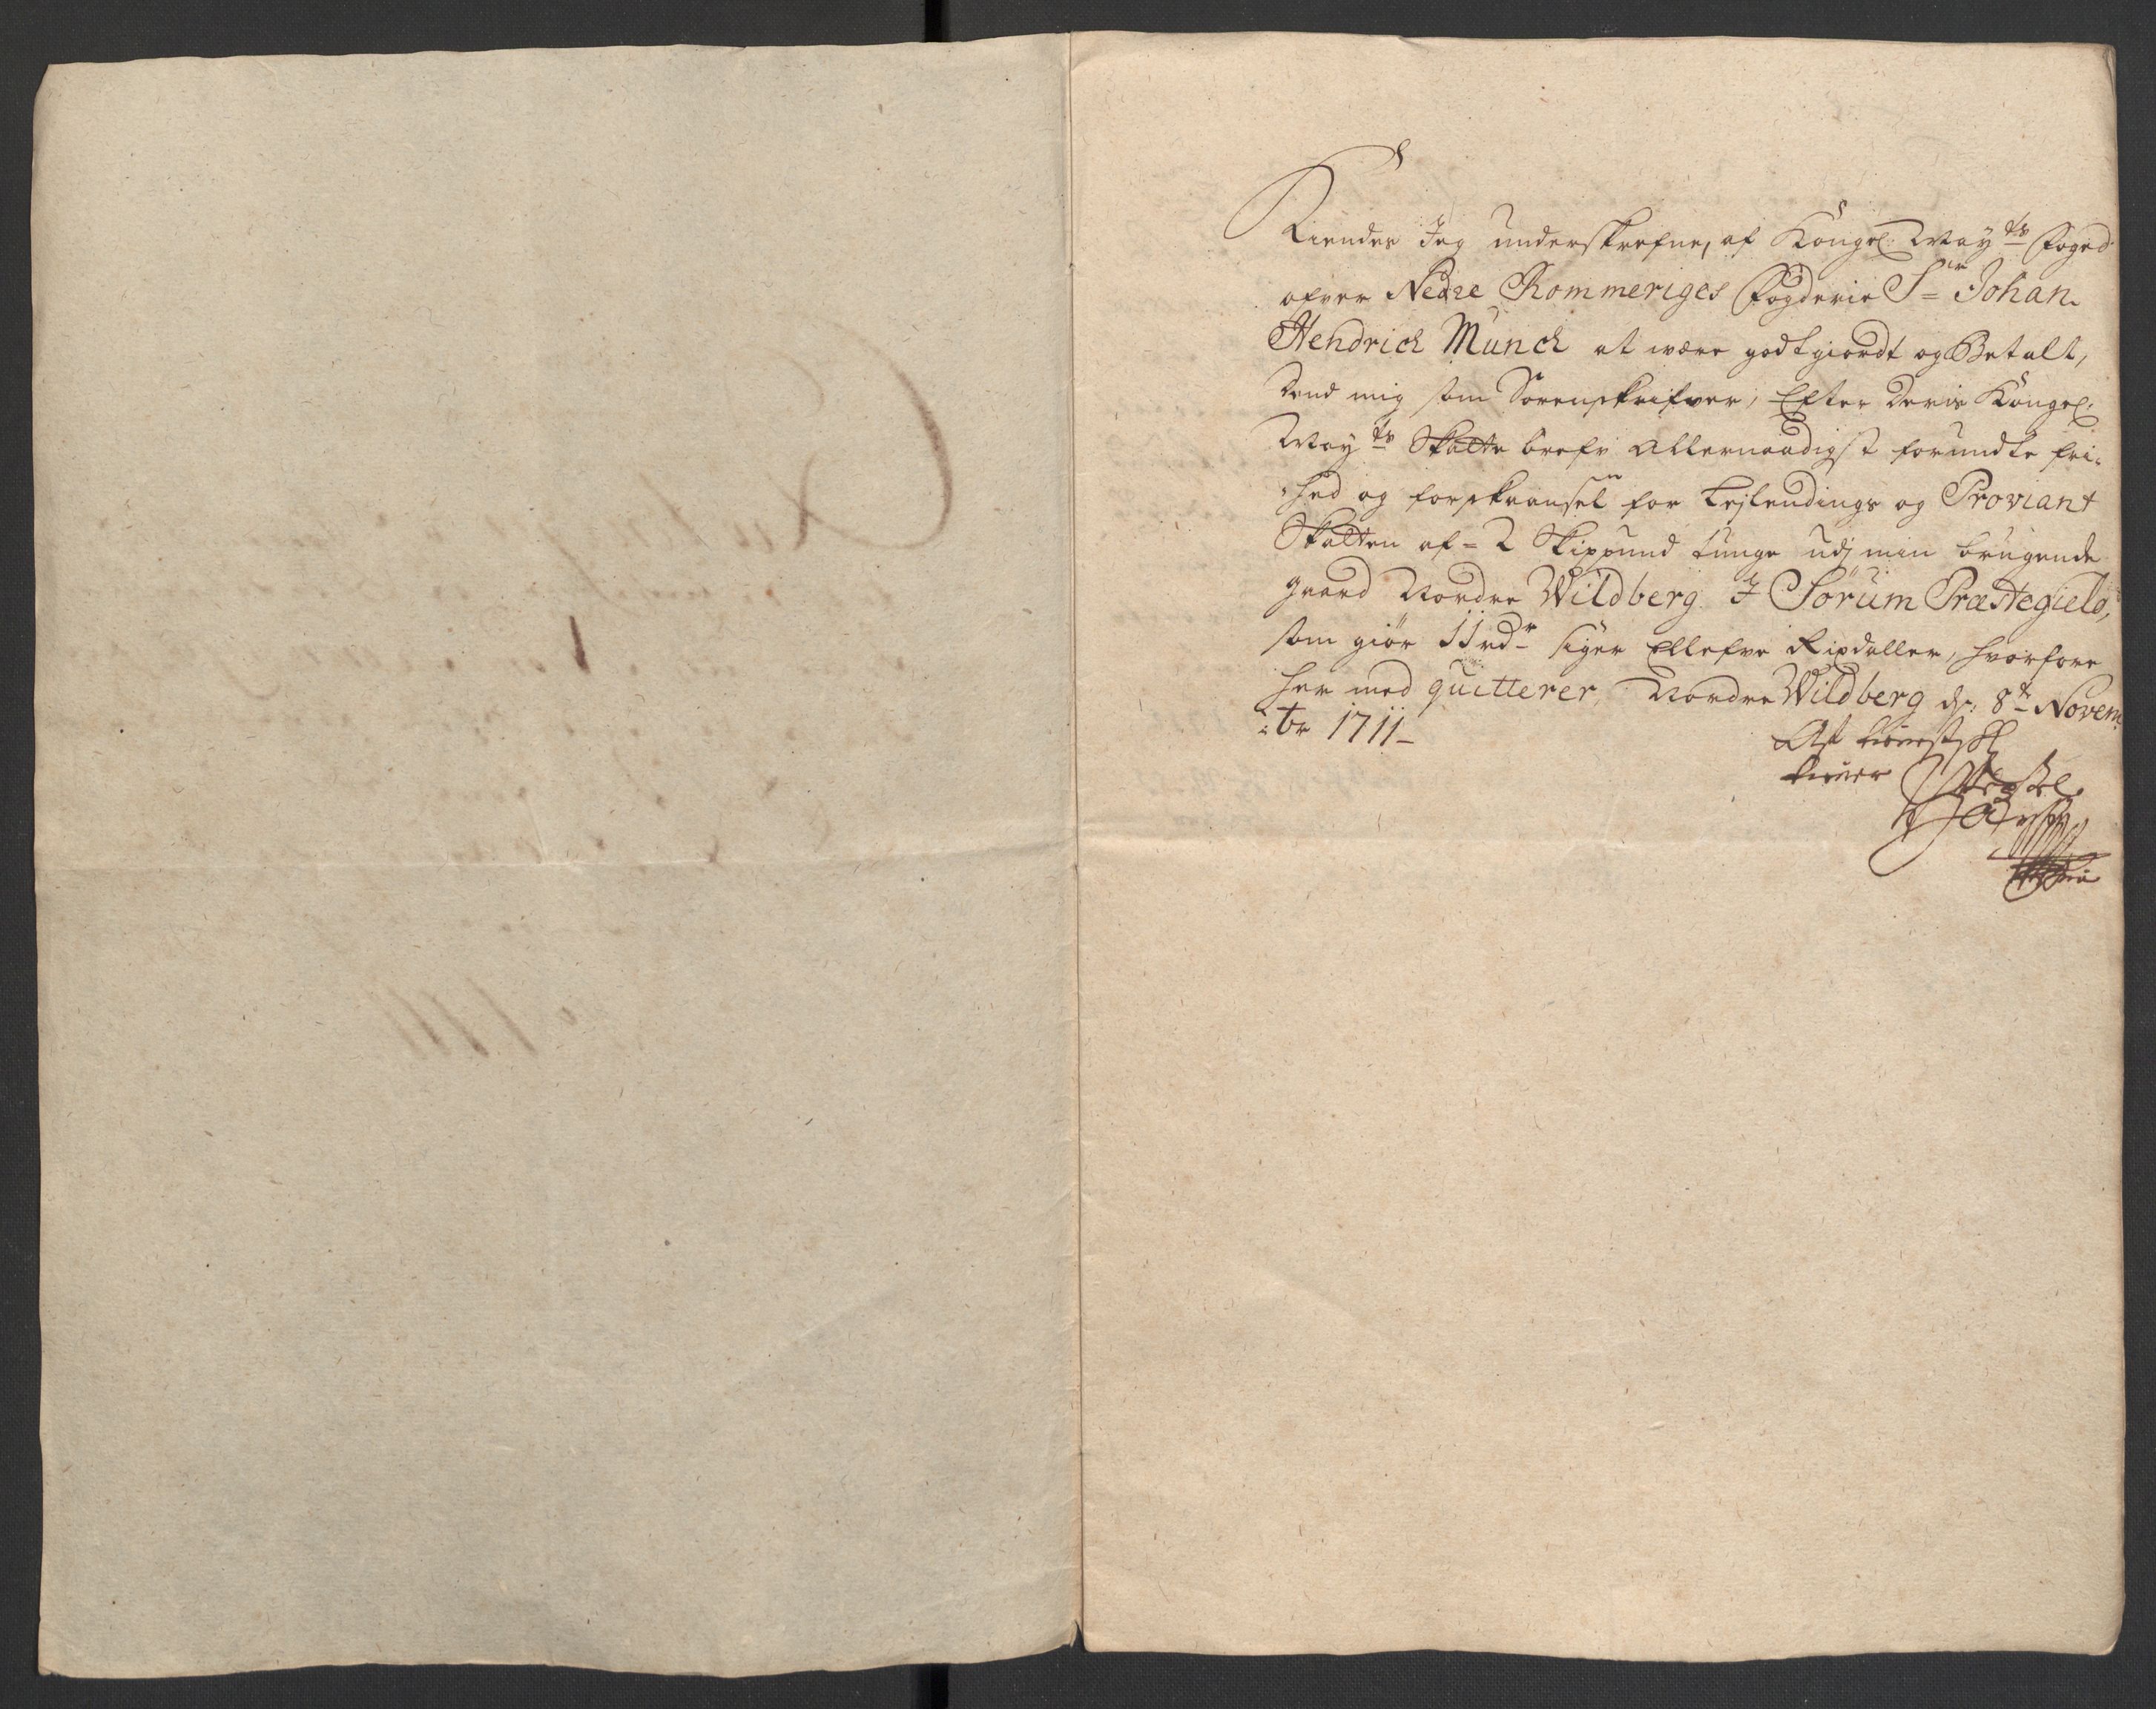 Kiendes Jeg underskrefne, af Kongel: May:ts Foged
ofver Nedre Rommeriges Fogderie Sr Johan
Hendrich Munch at være godtgiordt og Betalt,
dend mig som Sorenskrifver, Efter deris Kongel:
May:ts Skatte brefv Allernaadigst forundte fri-
hed og forskaansel for Leylendings og Proviant
Skatten af 2 Skippund tunge udj min brugende
gaard Nordre Wildberg J Sørum Præstegield,
som giør 11 rdr siger Ellefve Rixdaller, hvorfore
her med quitterer, Nordre Wildberg d: 8te Novem-
br 1711